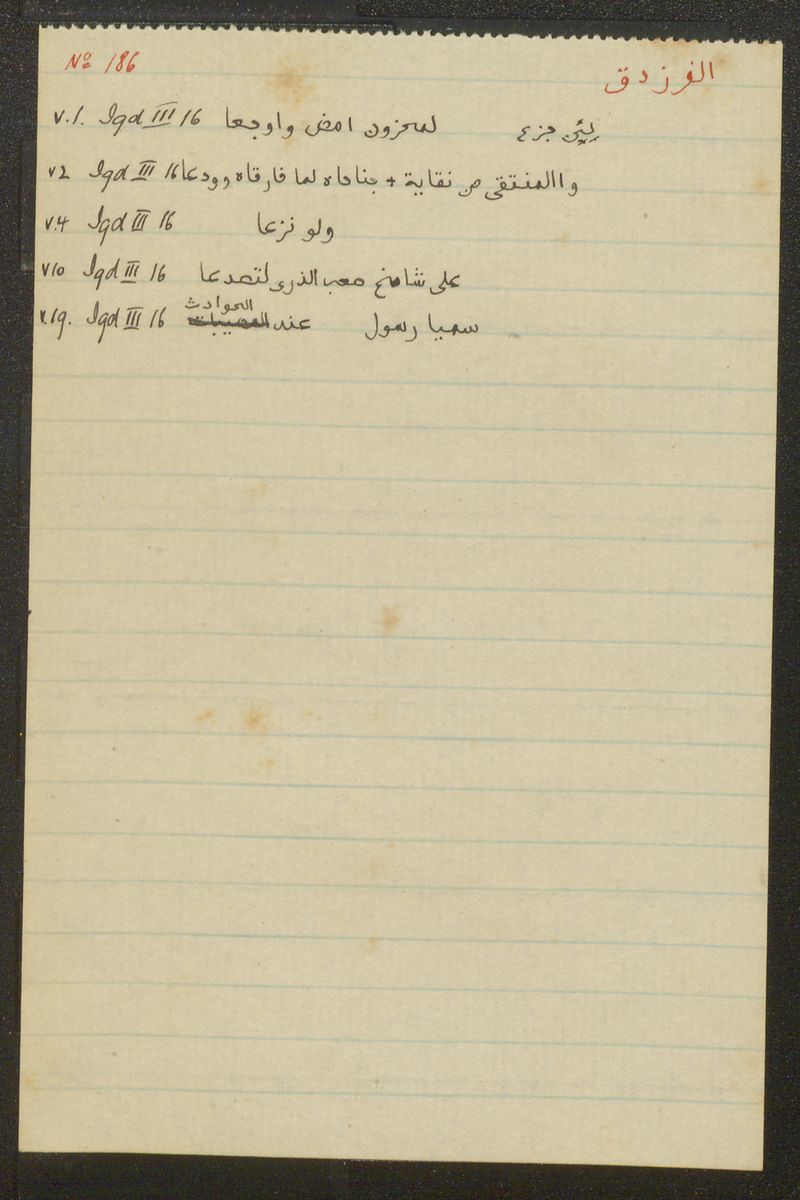 Nº 186 الفرزدق
v.1. Iqd III 16 لئن جزع لمحزون امض واوجعا
v2 Iqd III 16 واالمنتقى من نقابة + جناحاه لما فارقاه وودعا
v.4 Iqd III 16 ولو نزعا
v10 Iqd III 16 على شامخ صعب الذرى لتصدعا
v.19. Iqd III 16 سميا رسول عند المصيبات الحوادث